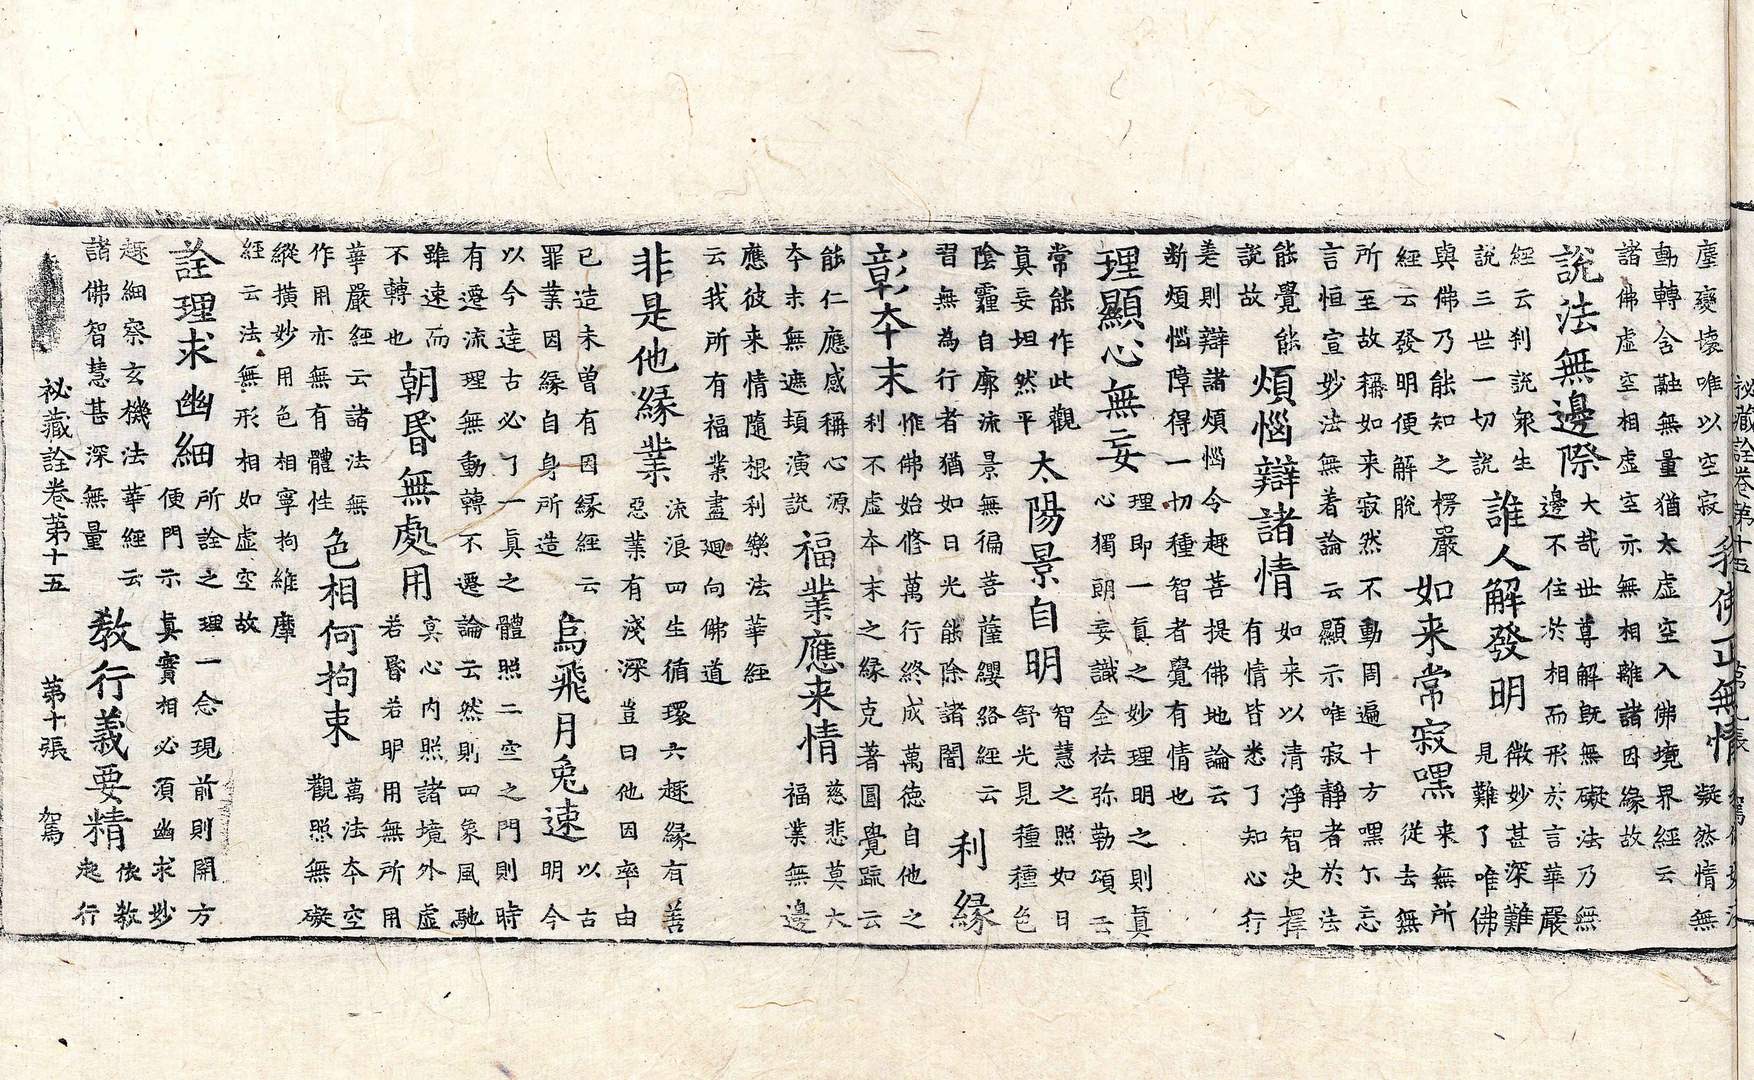 秘藏詮卷第十五
塵變壞唯以空寂
我佛正無情
凝然情無
動轉含融無量猶太虛空入佛境界經云
諸佛虛空相虛空亦無相離諸因緣故
說法無邊際
大哉世尊解旣無礙法乃無
邊不住於相而形於言華嚴
經云刹說衆生
說三世一切說
誰人解發明
微妙甚深難
見難了唯佛
與佛乃能知之楞嚴
經云發明便解脫
如来常寂嘿
来無所
從去無
所至故稱如来寂然不動周遍十方嘿尒忘
言恒宣妙法無著論云顯示唯寂靜者於法
能覺能
說故
煩惱辯諸情
如来以清淨智決擇
有情皆悉了知心行
差則辯諸煩惱令趣菩提佛地論云
断煩惱障得一切種智者覺有情也
理顯心無妄
理即一真之妙理明之則真
心獨朗妄識全祛弥勒頌云
常能作此觀
真妄坦然平
太陽景自明
智慧之照如日
舒光見種種色
陰霾自廓流景無徧菩薩纓絡經云
習無為行者猶如日光能除諸闇
利緣
彰夲末
惟佛始修萬行終成萬德自他之
利不虛夲末之緣克著圓覺䟽云
能仁應感稱心源
夲末無遮頓演說
福業應来情
慈悲莫大
福業無邊
應彼来情隨根利樂法華經
云我所有福業盡廻向佛道
非是他緣業
流浪四生循環六趣緣有善
惡業有淺深豈曰他因率由
已造未曽有因緣經云
罪業因緣自身所造
烏飛月兔速
以古
明今
以今達古必了一真之體照二空之門則時
有遷流理無動轉不遷論云然則四象風馳
雖速而
不轉也
朝昬無處用
冥心内照諸境外虛
若昬若明用無所用
華嚴經云諸法無
作用亦無有體性
色相何拘束
萬法夲空
觀照無礙
縱横妙用色相寧拘維摩
經云法無形相如虛空故
詮理求幽細
所詮之理一念現前則開方
便門示真實相必須幽求妙
趣細察玄機法華經云
諸佛智慧甚深無量
教行義要精
依教
起行
秘藏詮卷第十五 第十張 駕